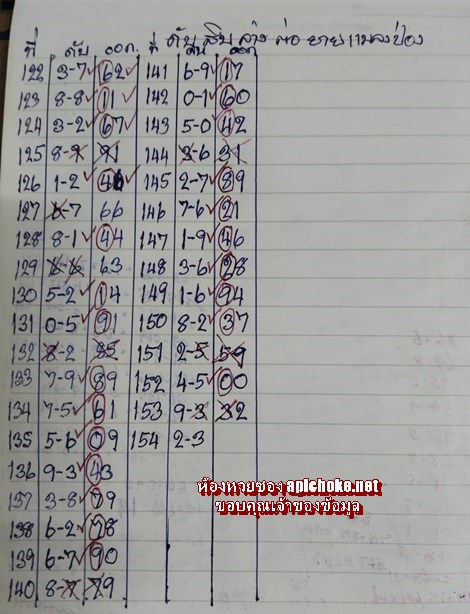 ที่ ดับ ออก. ที่ ดับ สิบ ล่าง ต่อ ยาย แมลงป่อง
122 3-7 62 141 6-9 17
123 8-8 11 142 0-1 60
124 3-2 67 143 5-0 42
125 8-9 91 144 3-6 31
126 1-2 46 145 2-7 89
127 6-7 66 146 7-6 21
128 8-1 44 147 1-9 46
129 6-6 63 148 3-6 28
130 5-2 14 149 1-6 94
131 0-5 91 150 8-2 37
132 8-2 35 151 2-5 59
133 7-9 89 152 4-5 00
134 7-5 61 153 9-3 32
135 5-6 09 154 2-3
136 9-3 43
137 3-8 99
138 6-2 78
139 6-7 90
140 8-7 29
ห้องหวยซอง apichoke.net
ขอบคุณเจ้าของข้อมูล